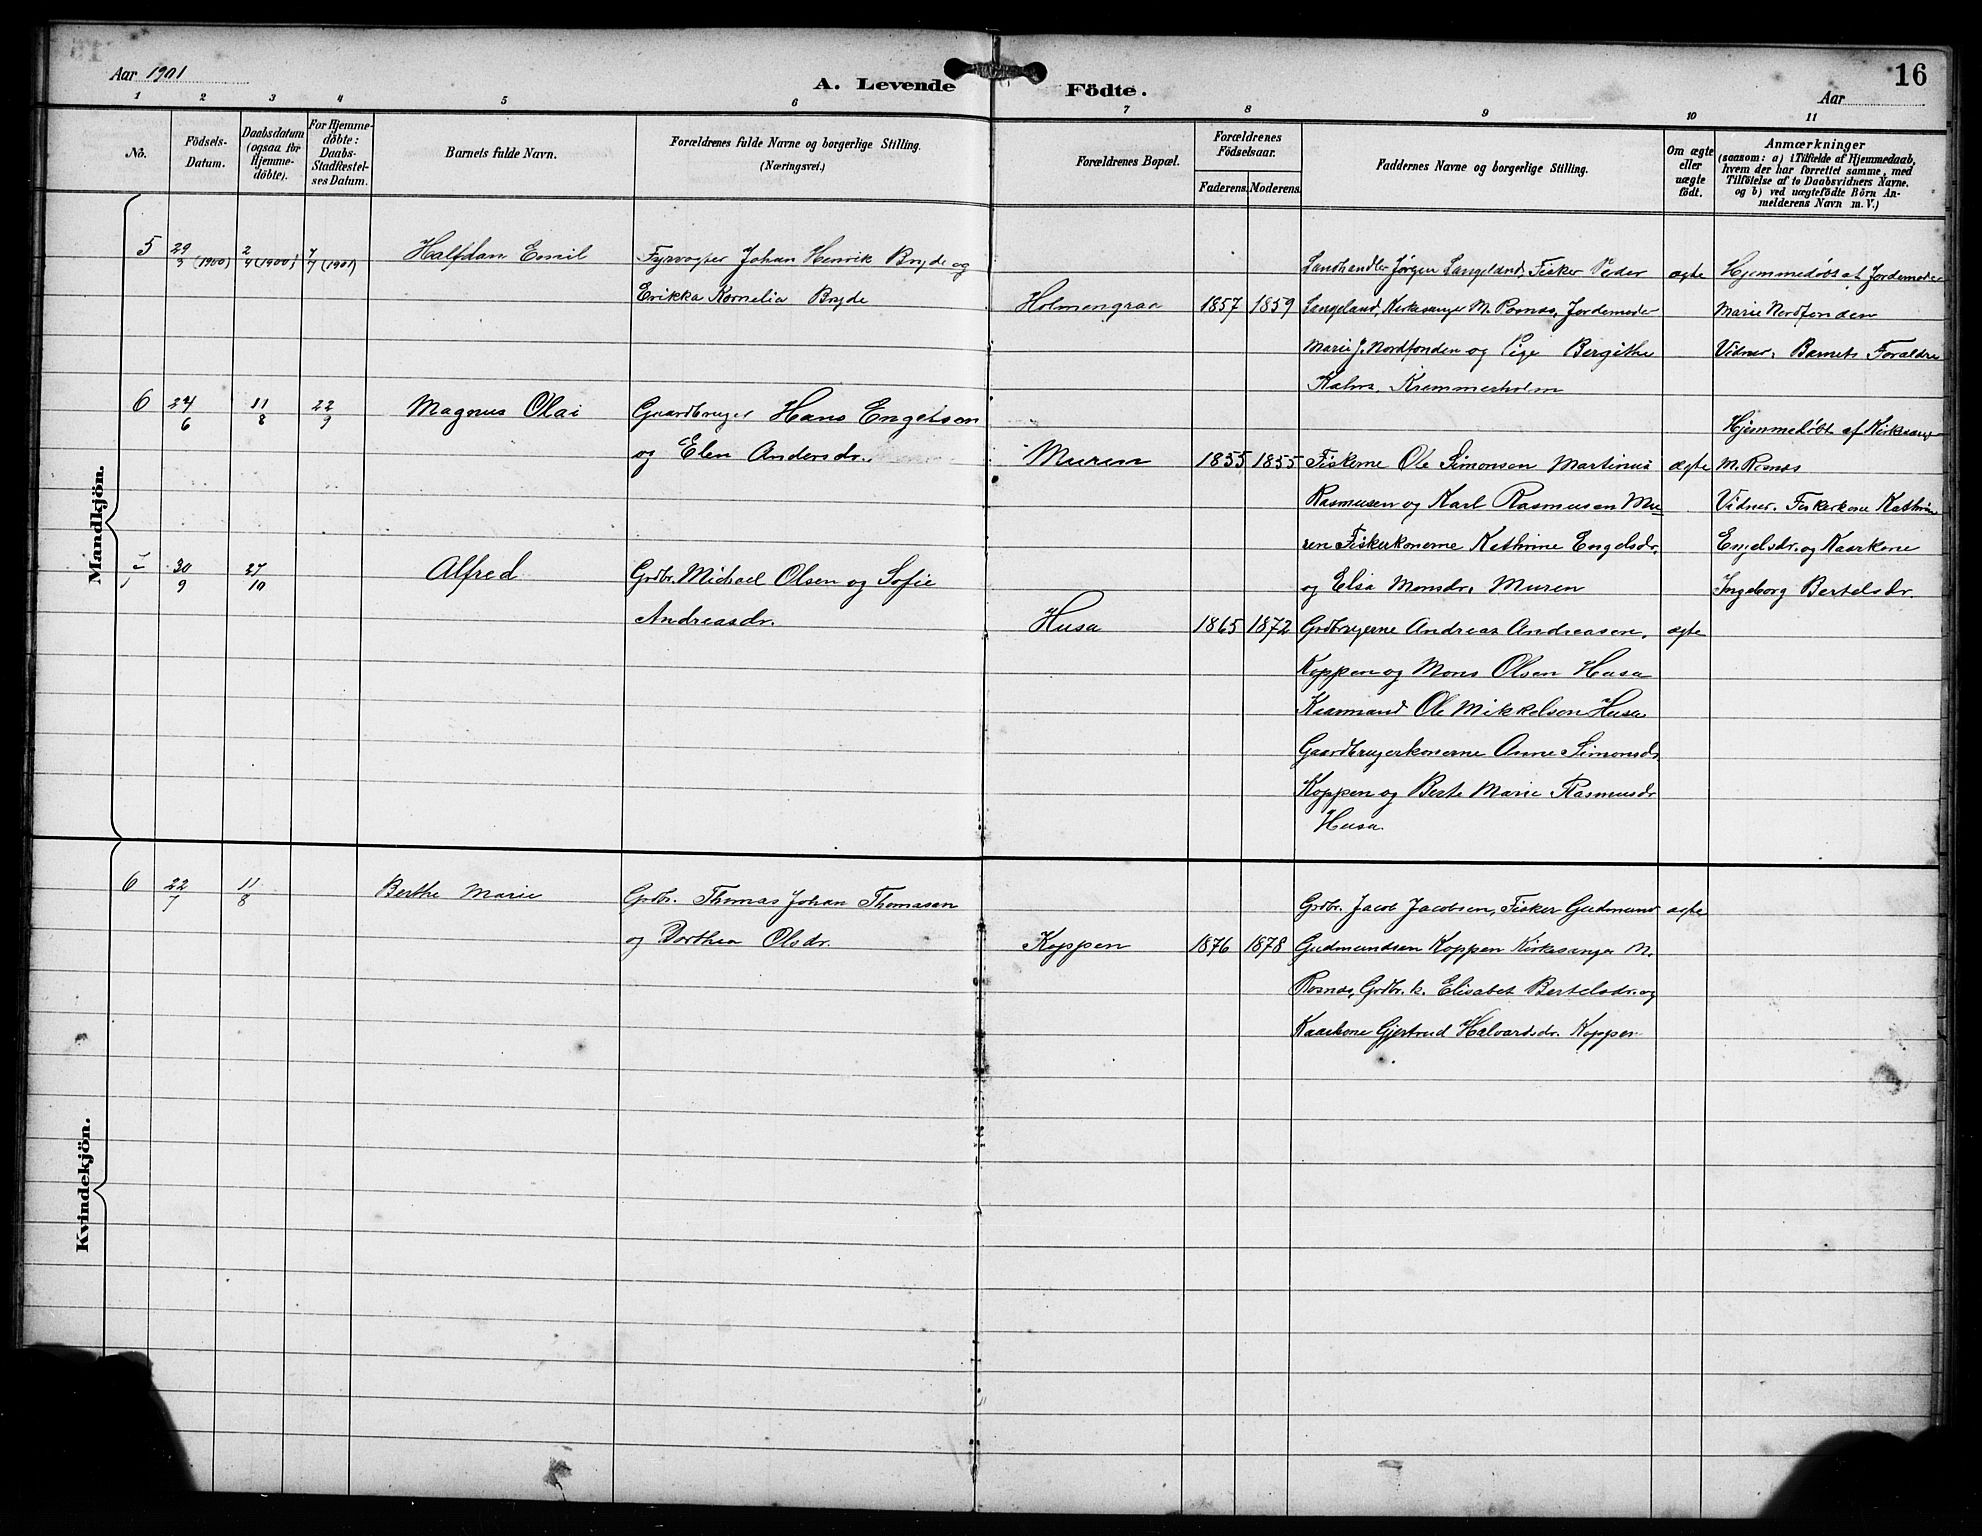 Aar 1901
A. Levende Födte.
16
Aar
1 2 3 4 5 6 7 8 9 10 11
No.
Födsels-
Datum.
Daabsdatum
(ogsaa for
Hjemme-
döbte).
For Hjemme-
döbte:
Daabs-
Stadfæstel-
ses Datum.
Barnets fulde Navn.
Forældrenes fulde Navne og borgerlige Stilling.
(Næringsvei.)
Forældrenes Bopæl.
Forældrenes
Födselsaar.
Faderens. Moderens.
Faddernes Navne og borgerlige Stilling.
Om ægte
eller
uægte
födt.
Anmærkninger
(saasom: a) i Tilfælde af Hjemmedaab,
hvem der har forrettet samme, med
Tilföielse af to Daabsvidners Navne.
og b) ved uægtefödte Börn An-
melderens Navn m. V.)
Mandkjön.
5
29/3 (1900)
2/4 (1900)
7/7 (1901)
Halfdan Emil
Fyrvogter Johan Henrik Bryde og
Erikka Kornelia Bryde
Holmengraa
1857 1859
Landhandler Jørgen Langeland, Fisker Peder
Langeland, Kirkesanger M. Rosnæs, Jordemoder
Marie J. Nordfonden og Pige Bergithe
Kahrs, Kræmmerholm
ægte
Hjemmedöbt af Jordemoder
Marie Nordfonden
Vidner: Barnets Forældre
6
24/6
11/8
22/9
Magnus Olai
Gaardbruger Hans Engelsen
og Elen Andersdr.
Muren
1855 1855
Fiskerne Ole Simonsen Martinus
Rasmusen og Karl Rasmusen Mu-
ren Fiskerkonerne Kathrine Engelsdr.
og Elsa Monsdr. Muren
ægte
Hjemmedöbt af Kirkesang
M. Rosnæs
Vidner. Fiskerkone Kathrine
Engelsdr. og Kaarkone
Ingeborg Bertelsdr.
30/9
27/10
Alfred
Grdbr. Michael Olsen og Sofie
Andreasdr.
Husa
1865 1872
Grdbrugerne Andreas Andreasen,
Koppen og Mons Olsen Husa
Kaarmand Ole Mikkelsen Husa
Gaardbrugerkonerne Anne Simonsdr.
Koppen og Berte Marie Rasmusdr
Husa
ægte
Kvindekjön.
6
22/7
11/8
Berthe Marie
Grdbr. Thomas Johan Thomasen
og Dorthea Olsdr.
Koppen
1876 1878
Grdbr. Jacob Jacobsen, Fisker Gudmund
Gudmundsen Koppen Kirkesanger M.
Rosnæs, Grdbr. k. Elisabet Bertelsdr. og
Kaarkone Gjertrud Halvardsdr. Koppen
ægte